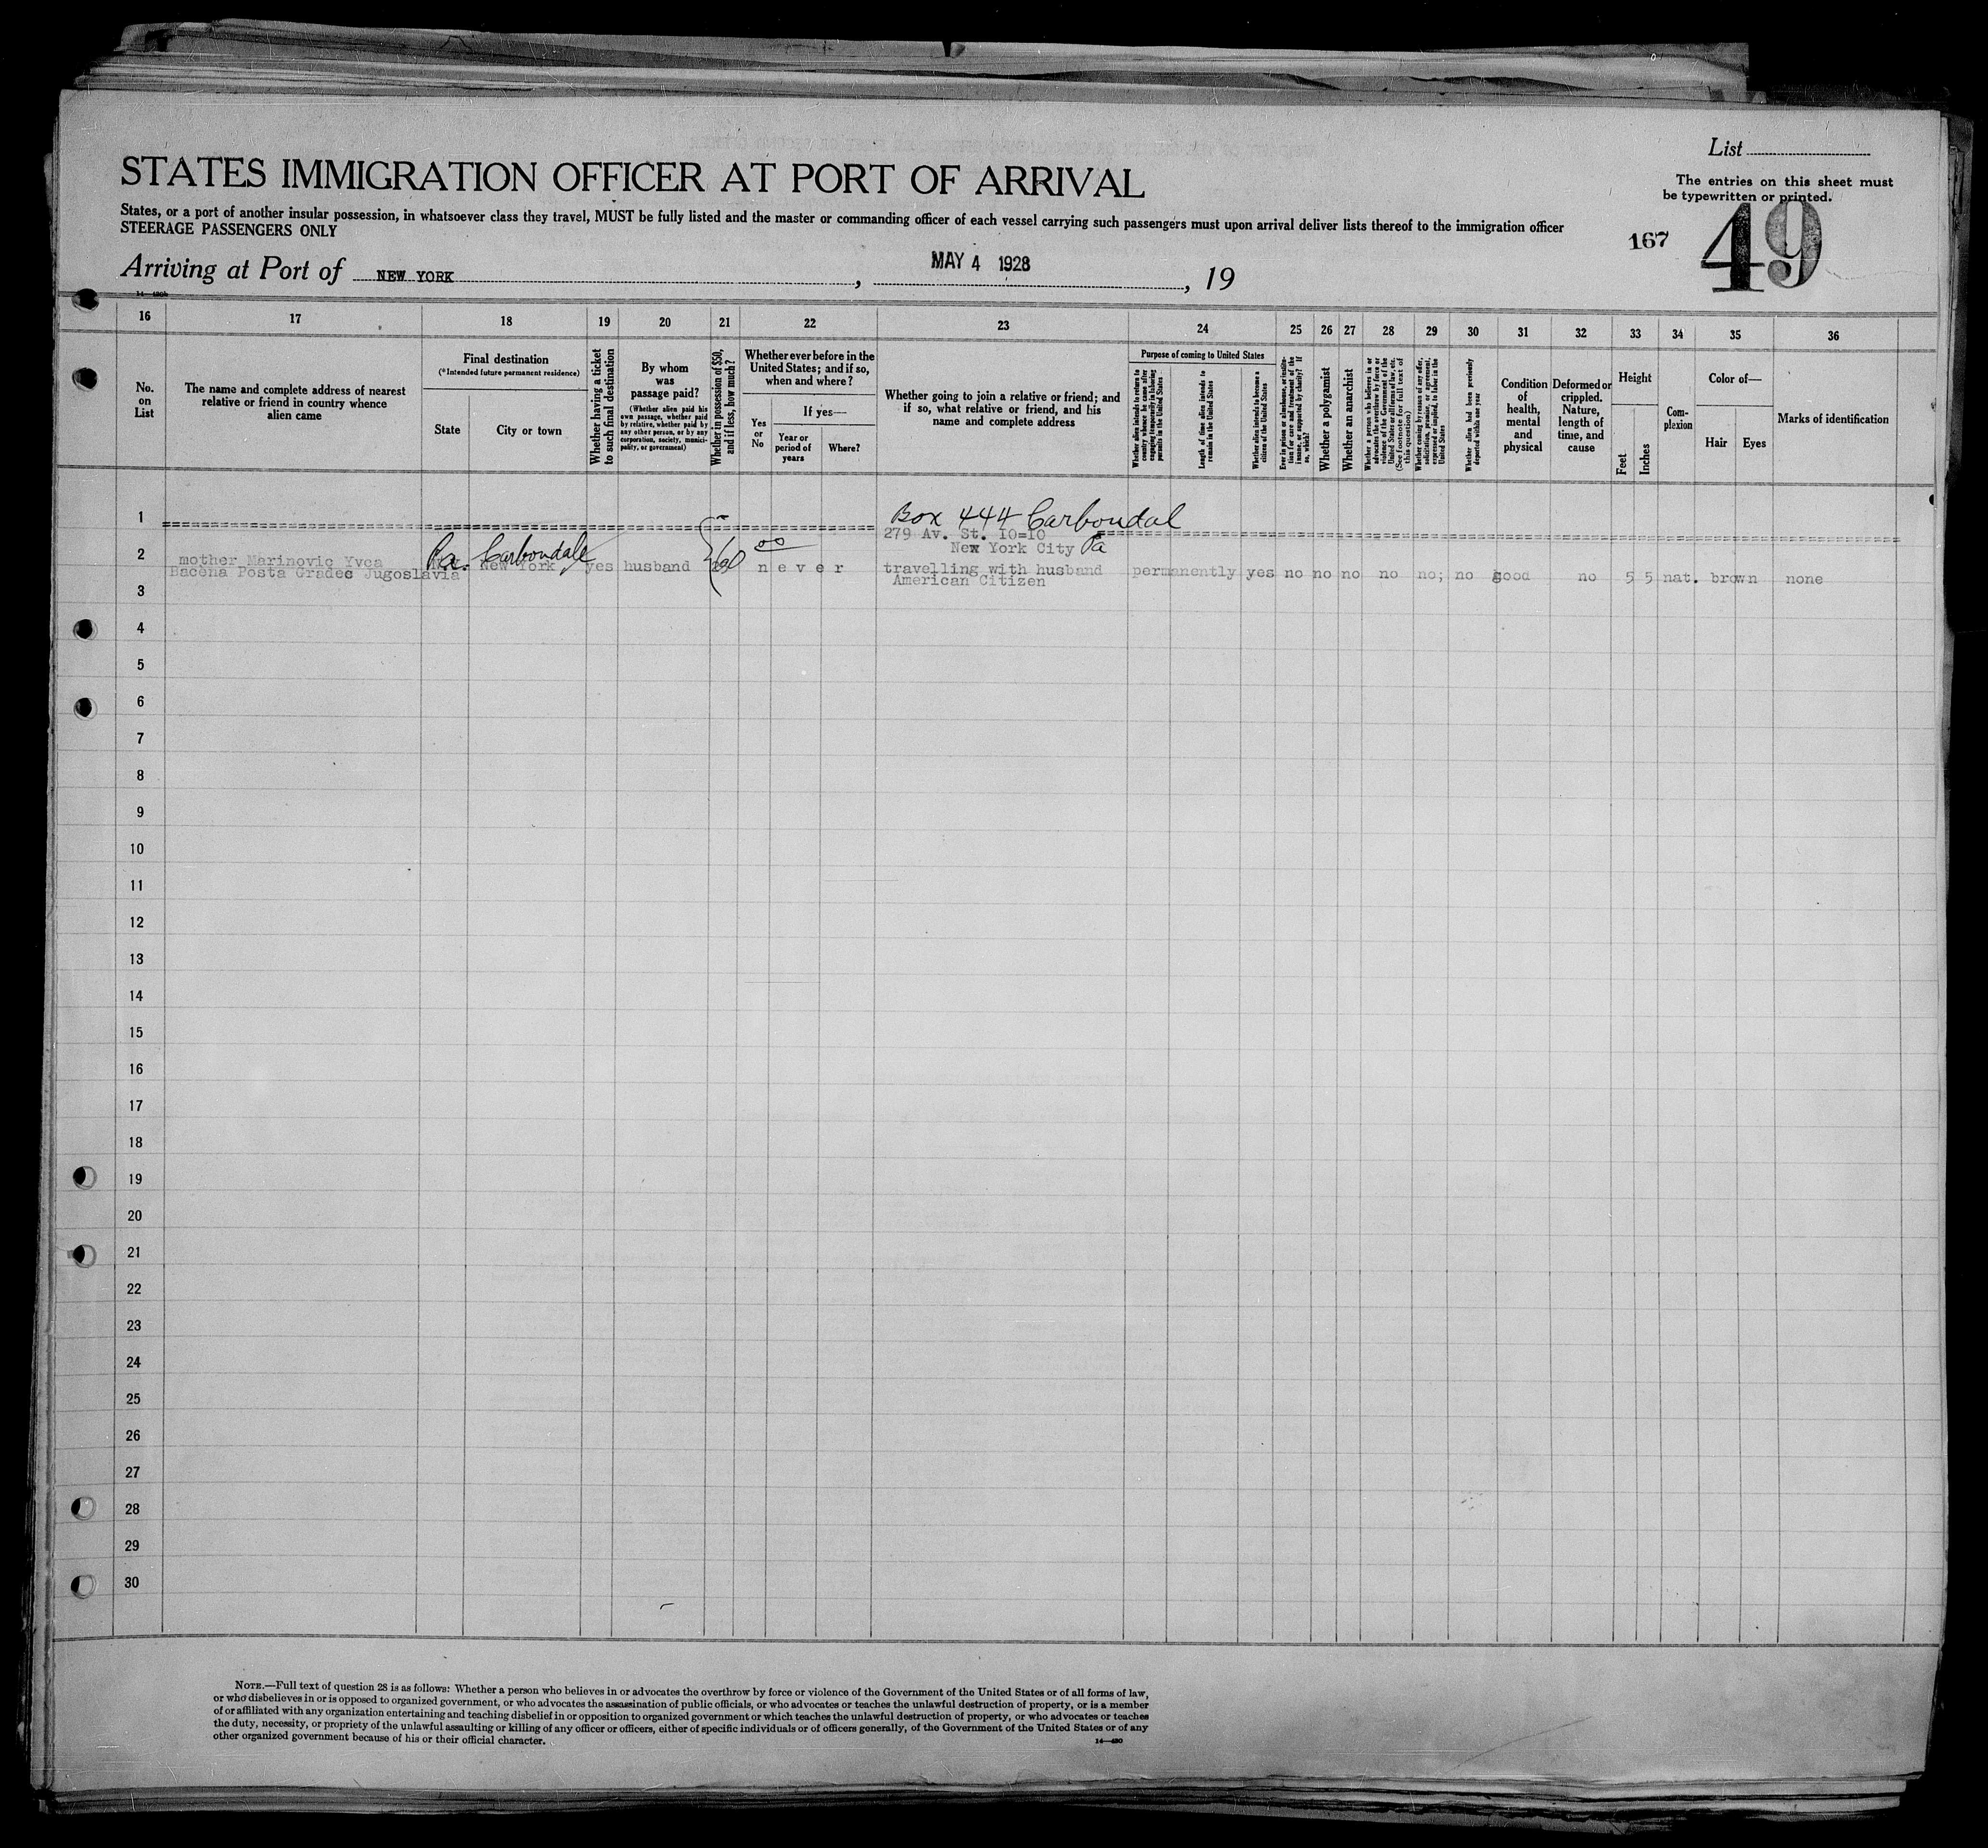 List
STATES IMMIGRATION OFFICER AT PORT OF ARRIVAL
The entries on this sheet must
be typewritten or printed.
States, or a port of another insular possession, in whatsoever class they travel, MUST be fully listed and the master or commanding officer of each vessel carrying such passengers must upon arrival deliver lists thereof to the immigration officer
STEERAGE PASSENGERS ONLY
167 49
Arriving at Port of NEW YORK, MAY 4 1928, 19
16 17 18 19 20 21 22 23 24 25 26 27 28 29 30 31 32 33 34 35 36
No. on List
The name and complete address of nearest relative or friend in country whence alien came
Final destination
(*Intended future permanent residence)
State
City or town
Whether having a ticket to such final destination
By whom was passage paid?
(Whether alien paid his own passage, whether paid by relative, whether paid by any other person, or by any corporation, society, municipality, or government)
Whether in possession of $50, and if less, how much?
Whether ever before in the United States; and if so, when and where?
Yes or No
If yes—
Year or period of years
Where?
Whether going to join a relative or friend; and if so, what relative or friend, and his name and complete address
Purpose of coming to United States
Whether alien intends to return to country whence he came after engaging temporarily in laboring pursuits in the United States
Length of time alien intends to remain in the United States
Whether alien intends to become a citizen of the United States
Ever in prison or almshouse, or institution for care and treatment of the insane, or supported by charity? If so, which?
Whether a polygamist
Whether an anarchist
Whether a person who believes in or advocates the overthrow by force or violence of the Government of the United States or all forms of law, etc. (See footnote for full text of this question)
Whether coming by reason of any offer, solicitation, promise, or agreement, expressed or implied, to labor in the United States
Whether alien had been previously deported within one year
Condition of health, mental and physical
Deformed or crippled. Nature, length of time, and cause
Height
Feet
Inches
Complexion
Color of—
Hair
Eyes
Marks of identification
1
Box 444 Carbondal
279 Av. St. IO=IO
New York City Pa
2
mother Marinovic Yvca
Pa. Carbondale
Bacena Posta Gradec Jugoslavia New York yes husband 60 00 never travelling with husband permanently yes no no no no no; no good no 5 5 nat. brown none
American Citizen
3
4
5
6
7
8
9
10
11
12
13
14
15
16
17
18
19
20
21
22
23
24
25
26
27
28
29
30
NOTE.—Full text of question 28 is as follows: Whether a person who believes in or advocates the overthrow by force or violence of the Government of the United States or of all forms of law,
or who disbelieves in or is opposed to organized government, or who advocates the assassination of public officials, or who advocates or teaches the unlawful destruction of property, or is a member
of or affiliated with any organization entertaining and teaching disbelief in or opposition to organized government or which teaches the unlawful destruction of property, or who advocates or teaches
the duty, necessity, or propriety of the unlawful assaulting or killing of any officer or officers, either of specific individuals or of officers generally, of the Government of the United States or of any
other organized government because of his or their official character.
14—490